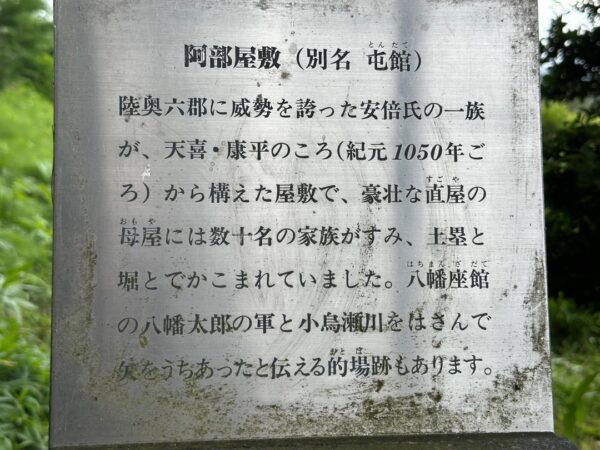 阿部屋敷（別名 屯館）
陸奥六郡に威勢を誇った安倍氏の一族
が、天喜・康平のころ（紀元1050年ご
ろ）から構えた屋敷で、豪壮な直屋の
母屋には数十名の家族がすみ、土塁と
堀とでかこまれていました。八幡座館
の八幡太郎の軍と小烏瀬川をはさんで
矢をうちあったと伝える的場跡もあります。